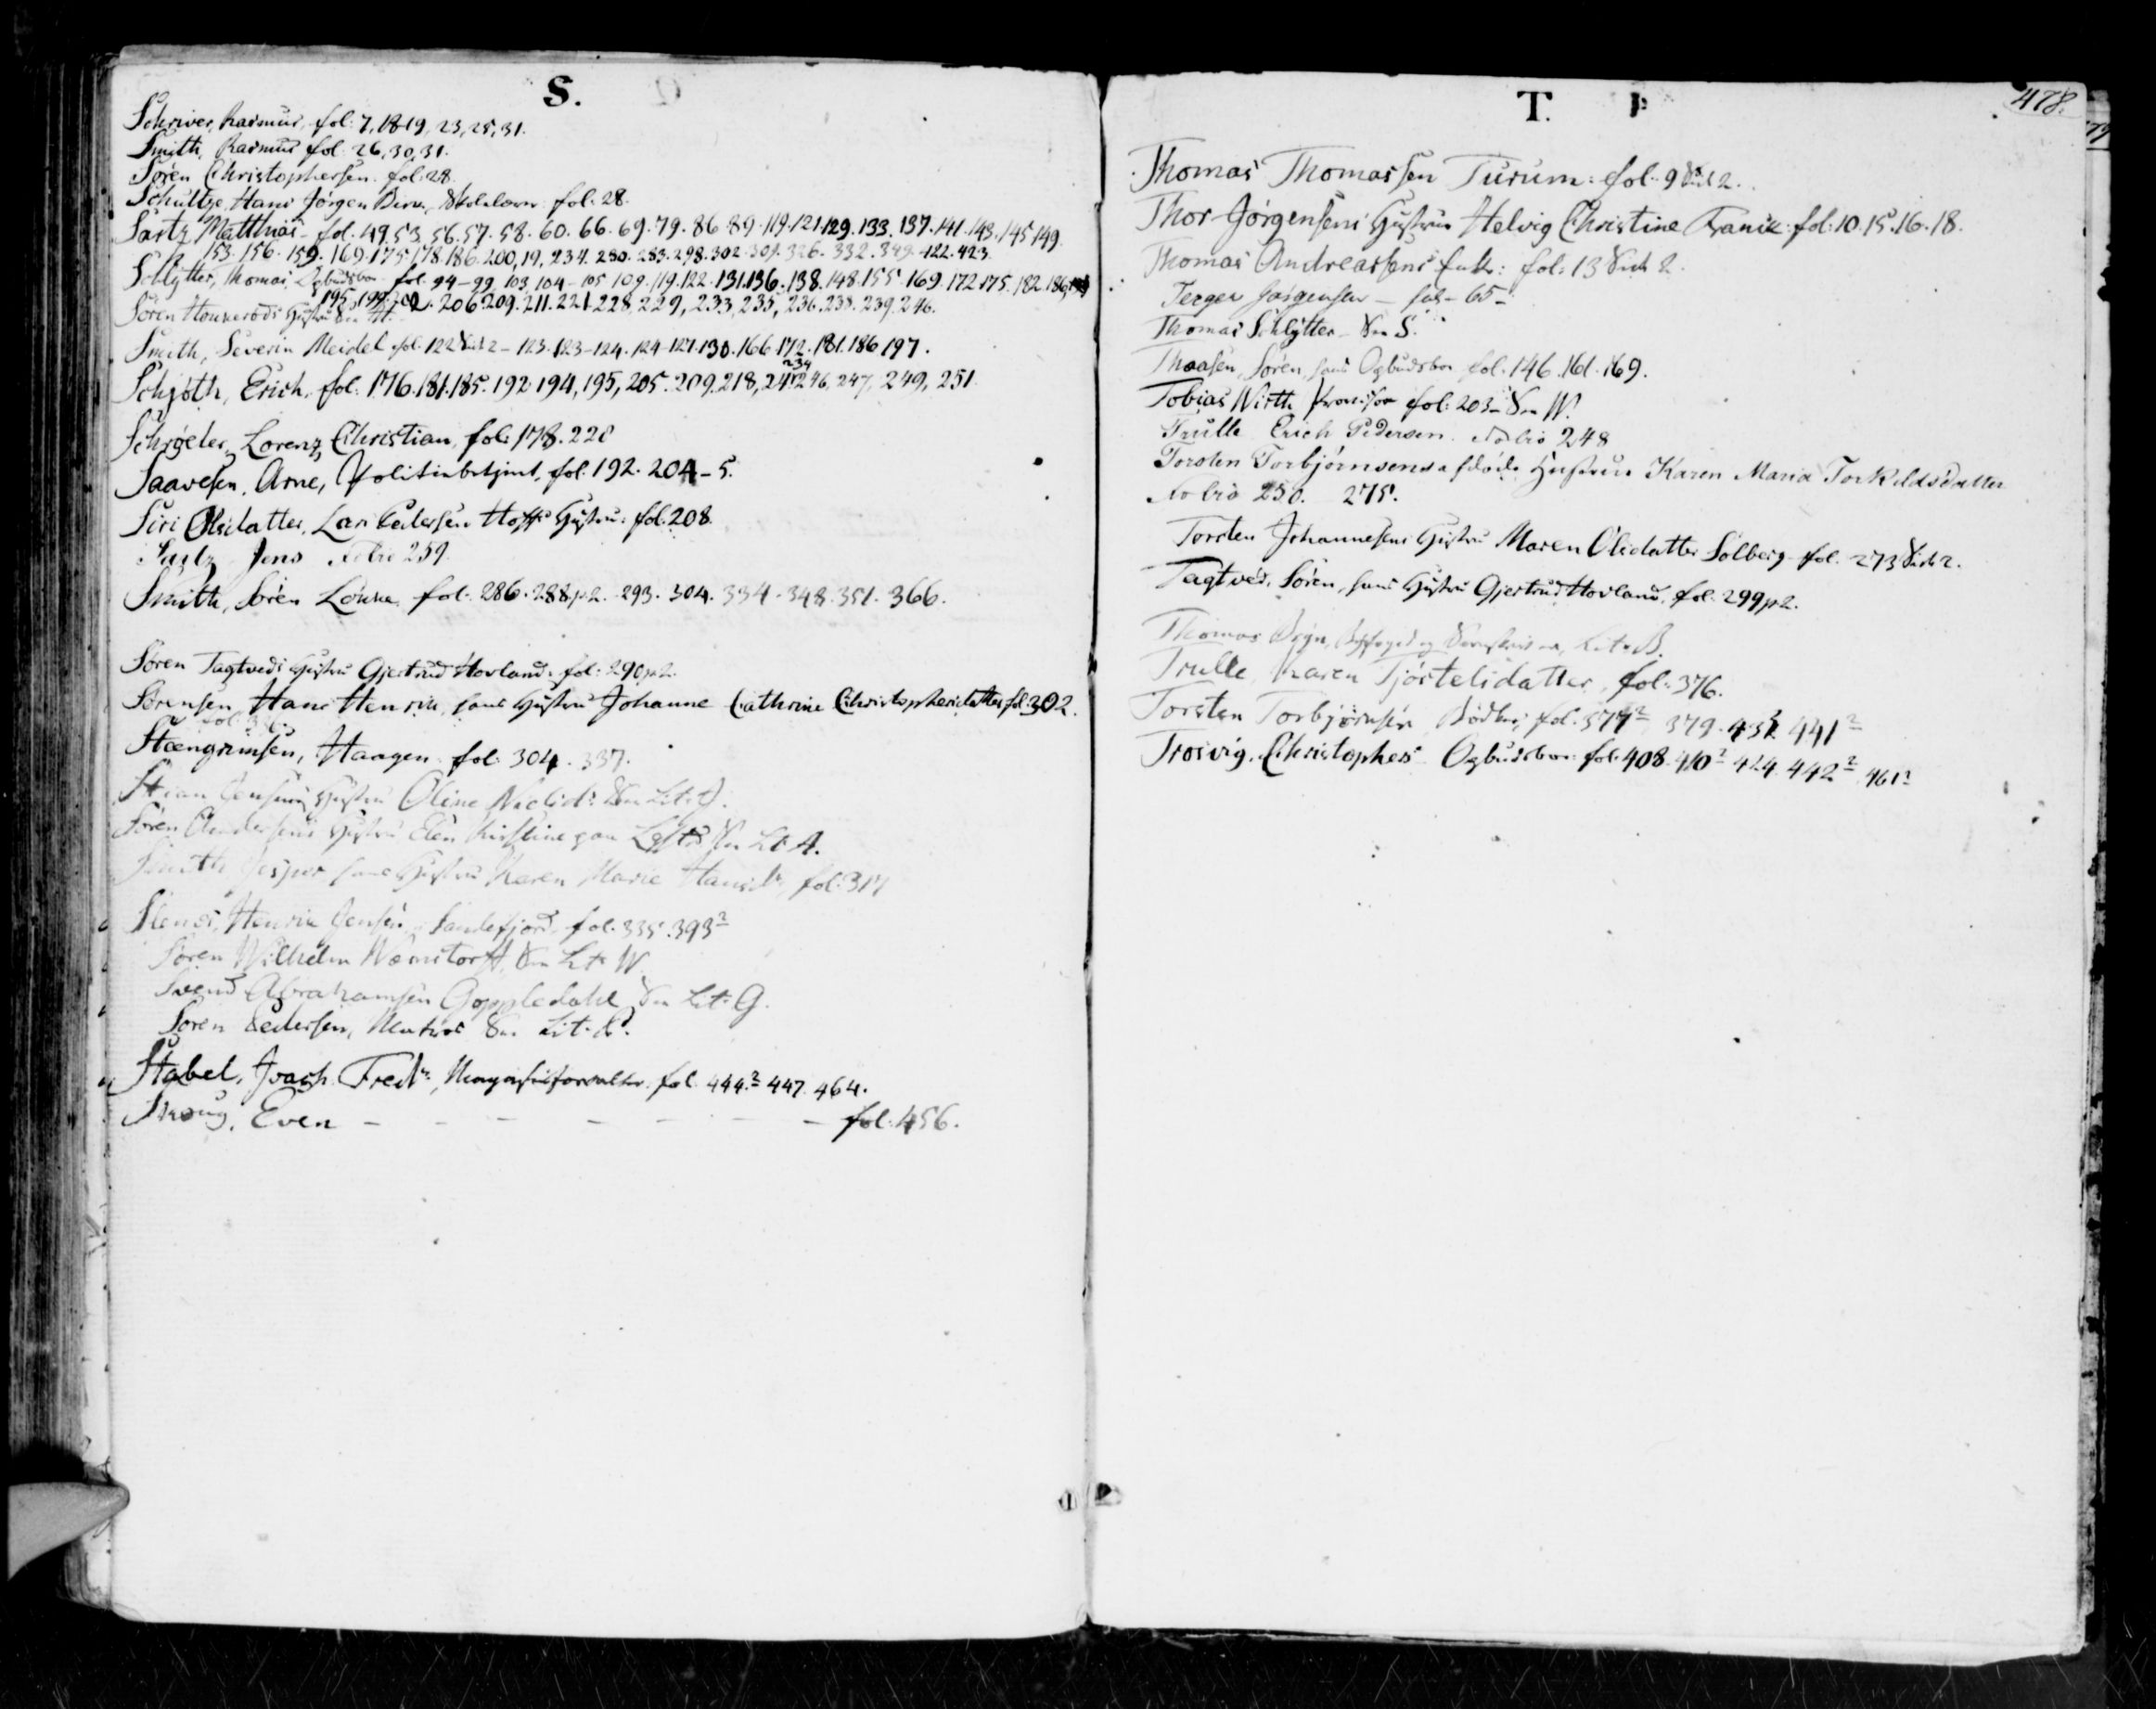 S.
Schriver, Rasmus, fol: 7, 18-19, 23, 25, 31.
Smith, Rasmus fol. 26, 30, 31.
Søren Christophersen. fol: 28.
Schultze, Hans Jørgen fol: 28.
Sartz Matthias - fol. 49. 53. 56. 57. 58. 60. 66. 69. 79. 86. 89. 119. 121. 129. 133. 137. 141. 143. 145. 149.
153. 156. 159. 169. 175. 178. 186. 200, 19, 234. 280. 283. 298. 302. 326. 332. 349. 422. 423.
Schlytter, Thomas, Ogbudsbor fol. 94-99. 103. 104-105. 109. 119. 122. 131. 136. 138. 148. 155. 169. 172. 175. 182. 186,
195. 199. 202. 206. 209. 211. 221. 228. 229, 233, 235, 236. 238. 239. 246.
Søren Hustru
Smith, Severin Meidel fol. 122 Side 2 - 123. 123-124. 124-127. 130. 166. 172. 181. 186. 197.
234
Schjøth, Erich, fol: 176. 181. 185. 192. 194, 195, 205. 209. 218, 246, 247, 249, 251.
Schrøeter, Lorenz Christian, fol: 178. 228
Saavesen, Arne, Politiebetjent, fol. 192. 204-5.
Siri Olsdatter, Lars Pedersen Hoffs Hustru: fol. 208.
Jens Folio 259.
Smith, Søren Lønne, fol: 286. 288 p 2. 293. 304. 334. 348. 351. 366.
Søren Tagtveds Hustru Gjertrud Hovland. fol: 290 p 2.
Sørensen, Hans Henrik, hans Hustru Johanne Cathrine Christophersdatter fol. 302.
Steengrimsen, Haagen. fol. 304. 337.
Stian Jensens Hustru Oline
Søren Andersens Hustru Elen Kirstine Lit. A.
Smith Jesper hans Hustru Karen Marie fol: 317
Henrik Jensen, Sandefjord. fol. 335. 393²
Søren Wilhelm Lit. W.
Svend Abrahamsen Goppledahl Lit. G.
Søren Pedersen, Lit.
Stabel, Joach. Fredr:, Magasinforvalter. fol. 444.² 447. 464.
Even - - - - - - - fol. 456.
T.
478.
Thomas Thomassen Turum: fol. 9 Side 2.
Thor Jørgensens Hustrue Helvig Christine Franck: fol: 10. 15. 16. 18.
Thomas Andreassens Enke: fol: 13 Side 2.
Terger Jørgensen - fol - 65 -
Thomas Schlytter - S.
Thoasen, Søren, hans Ogbudsbor fol. 146. 161. 169.
Tobias Wirth fol: 203 - W.
Trulle Erich Pedersen. Folio 248
Torsten Torbjørnsens afdøde Hustrue Karen Maria Torkildsdatter
Folio 250. 275.
Torsten Johannesens Hustru Maren Olsdatter Solberg fol. 273 Side 2.
Tagtved, Søren, hans Hustru Gjertrud Hovland, fol. 299 p 2.
Thomas Byfoged og Lit. B.
Trulle, Karen Tjøstelsdatter, fol: 376.
Torsten Torbjørnsen, Bødker, fol. 377² 379. 441²
Trosvig, Christopher Ogbudsbor: fol. 408. 410² 424. 442² 461²